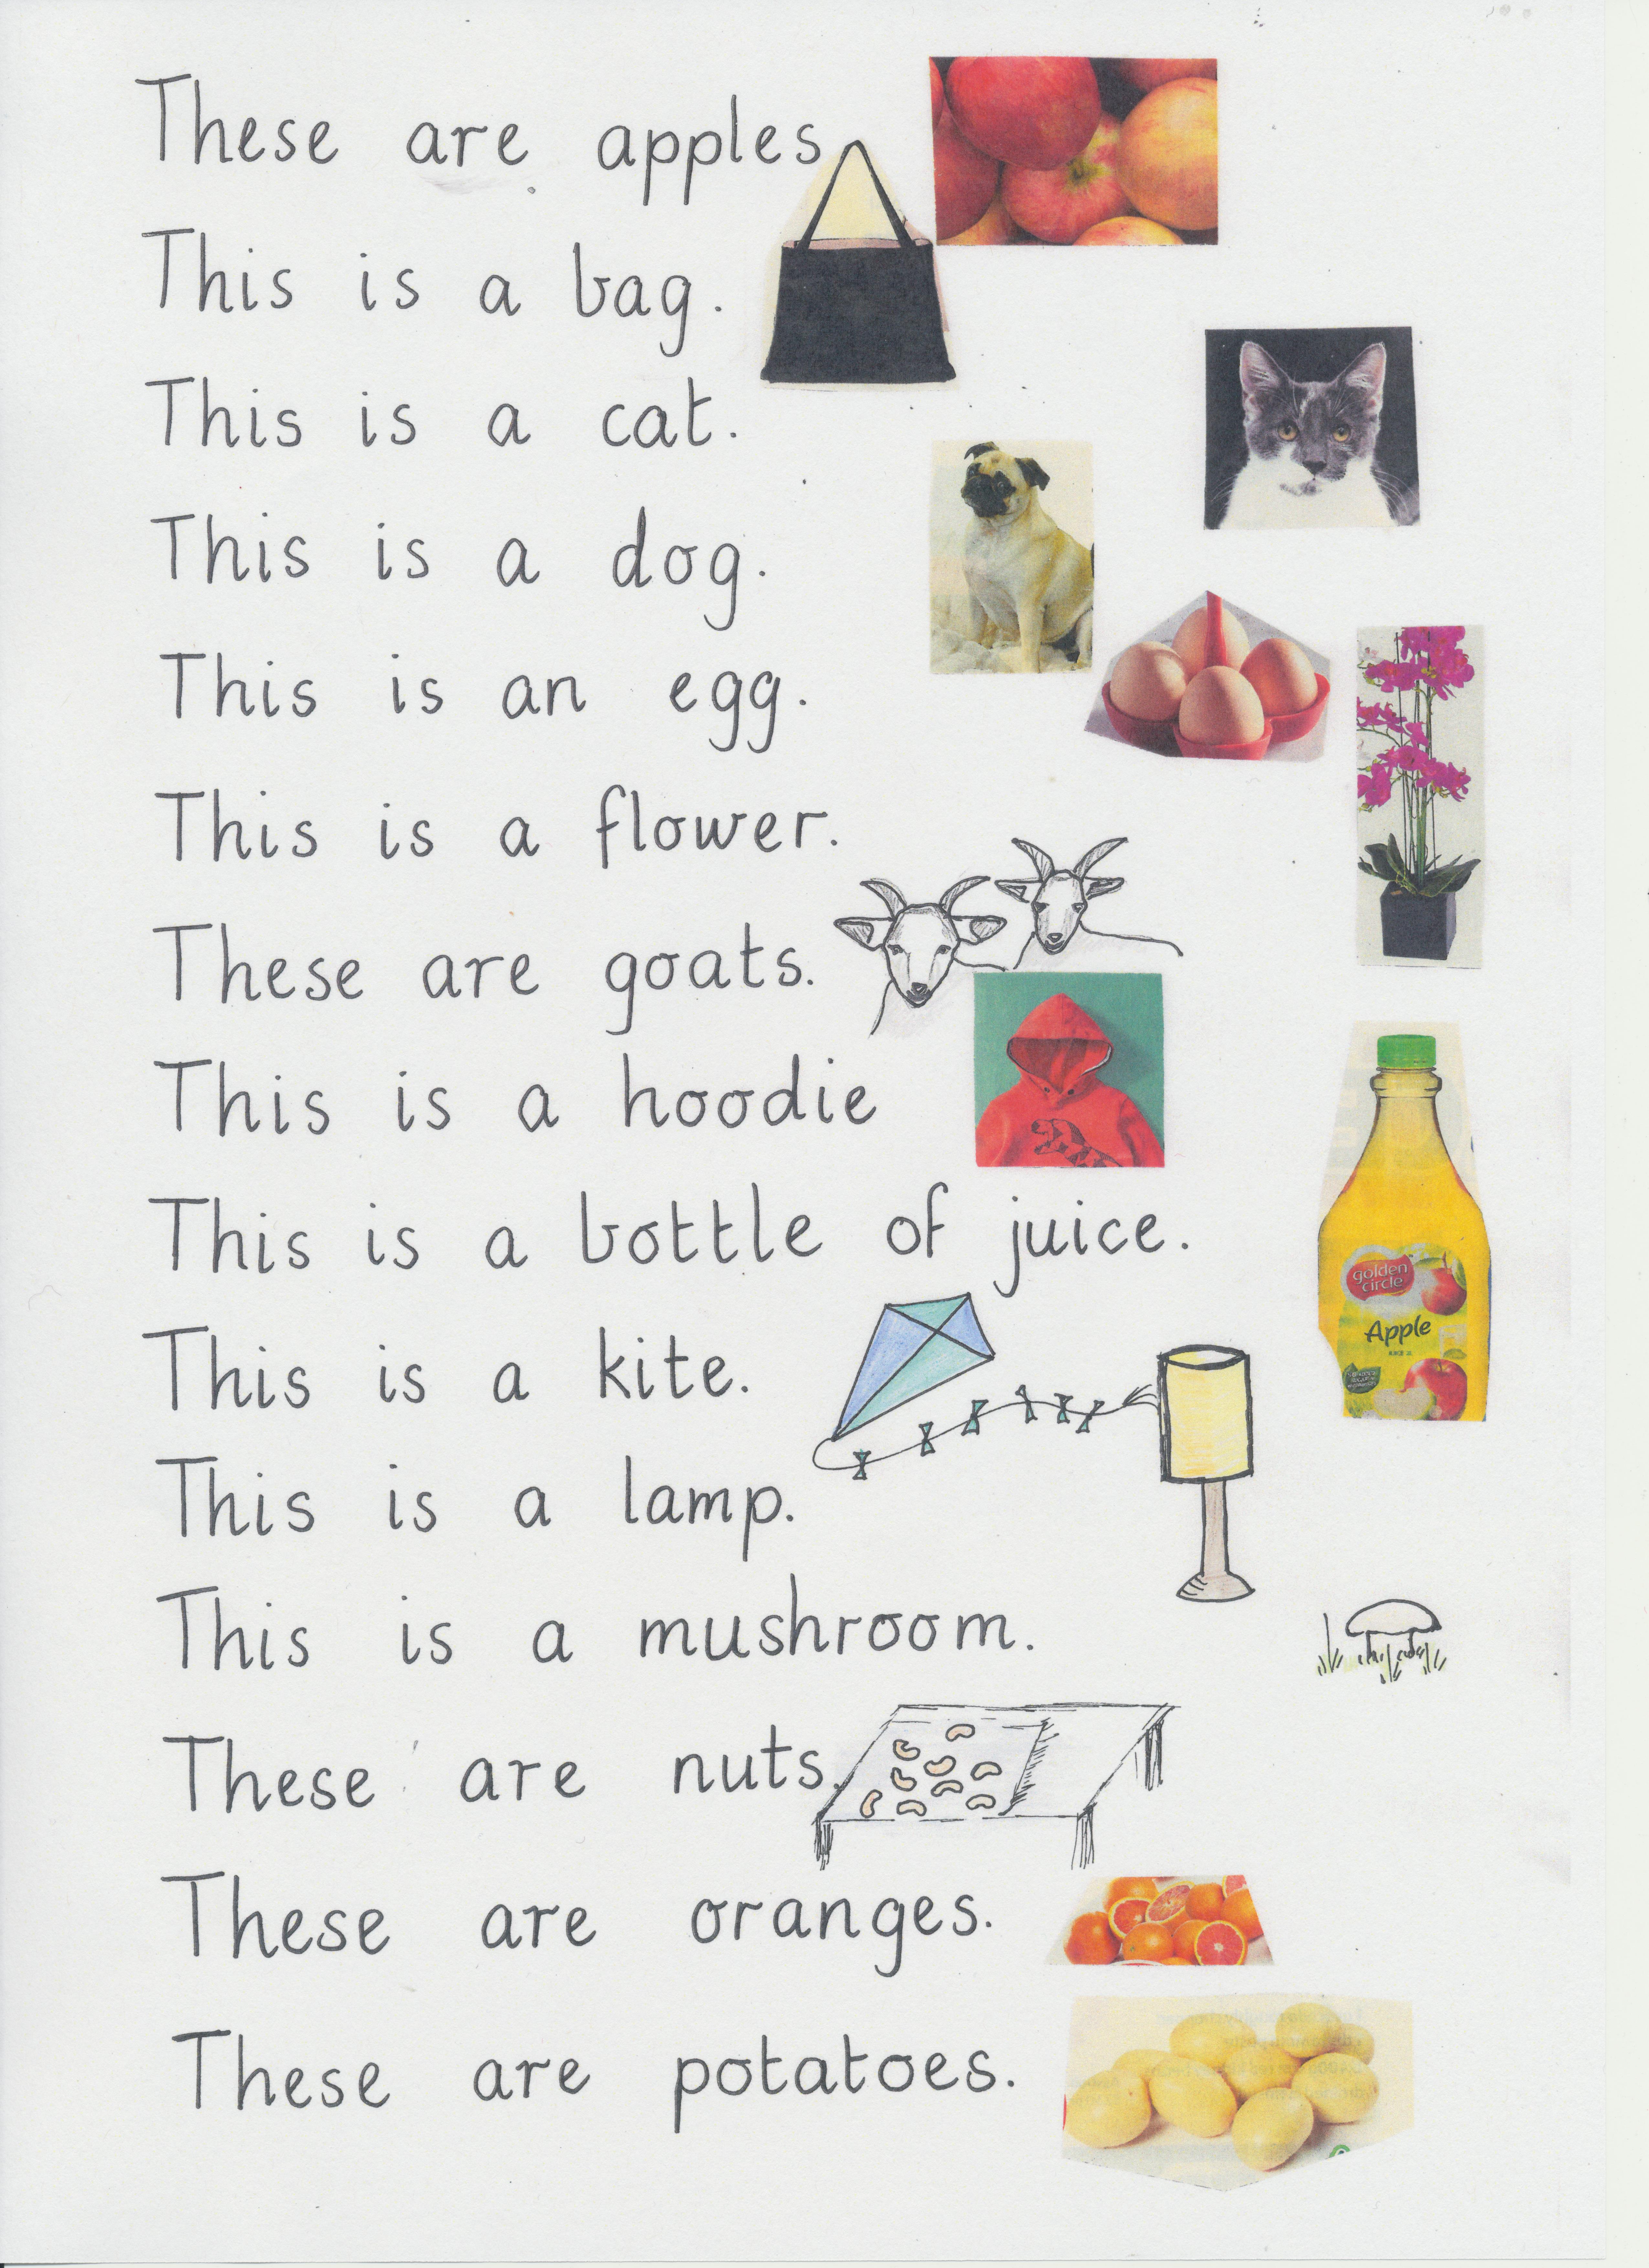 These are apples
This is a bag.
This is a cat.
This is a dog.
This is an egg.
This is a flower.
These are goats.
This is a hoodie
This is a bottle of juice.
golden
circle
Apple
This is a kite.
This is a lamp.
This is a mushroom.
These are nuts.
These are oranges.
These are potatoes.